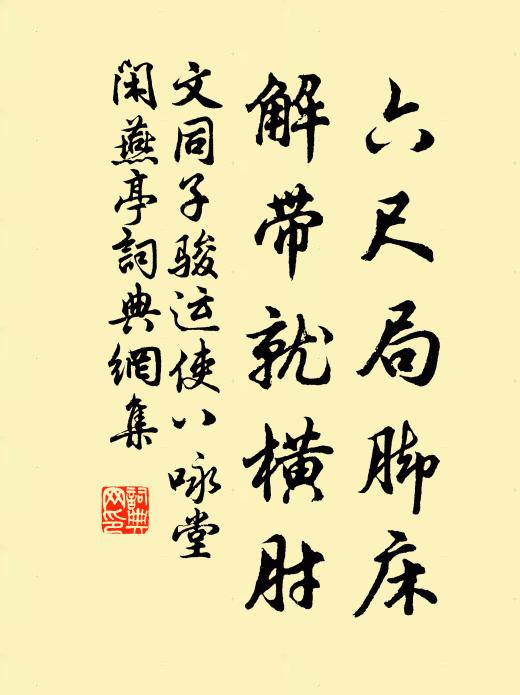 六尺局脚床
解带就横肘
文同子骏运使八咏堂
闲燕亭詞典網集
詞典網印